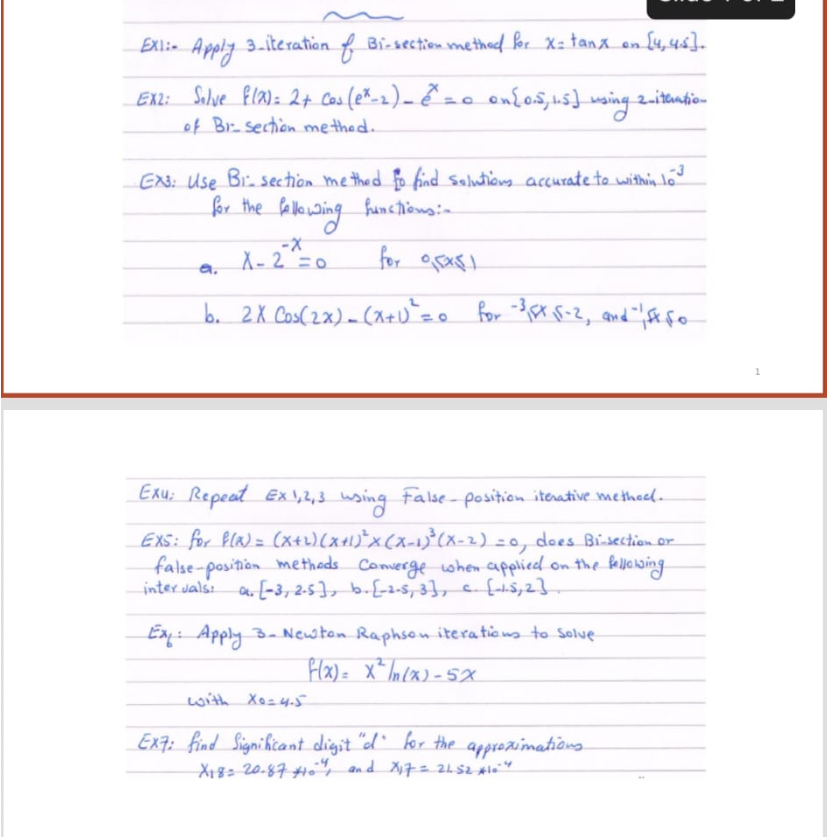 EX1:- Apply 3-iteration of Bi-section method for x= tanx on [4,4.5].
EX2: Solve f(x)= 2+ Cos(eˣ-2)-eˣ=0 on[0.5,1.5] using 2-iteratio-
of Bi-section method.
EX3: Use Bi-section method to find solutions accurate to within 10⁻³
for the following functions:-
a. x-2⁻ˣ=0 for 0≤x≤1
b. 2x Cos(2x)-(x+1)²=0 for -3≤x≤-2, and -1≤x≤0
1
EX4: Repeat EX 1,2,3 using False-position iterative method.
EX5: for f(x)= (x+2)(x+1)²x(x-1)³(x-2)=0, does Bi-section or
false-position methods Converge when applied on the following
intervals: a.[-3,2.5], b.[-2.5,3], c.[-1.5,2].
Ex6: Apply 3-Newton Raphson iterations to solve
f(x)= x² ln(x)-5x
with x0=4.5
EX7: find Significant digit "d" for the approximations
X18= 20.87 *10⁻⁴, and X17= 21.52 *10⁻⁴